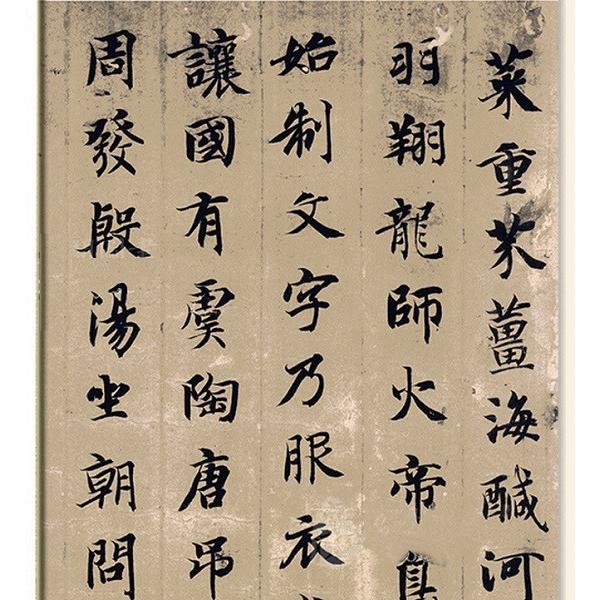 菜重芥薑海醎河
羽翔龍師火帝
始制文字乃服衣
讓國有虞陶唐吊
周發殷湯坐朝問